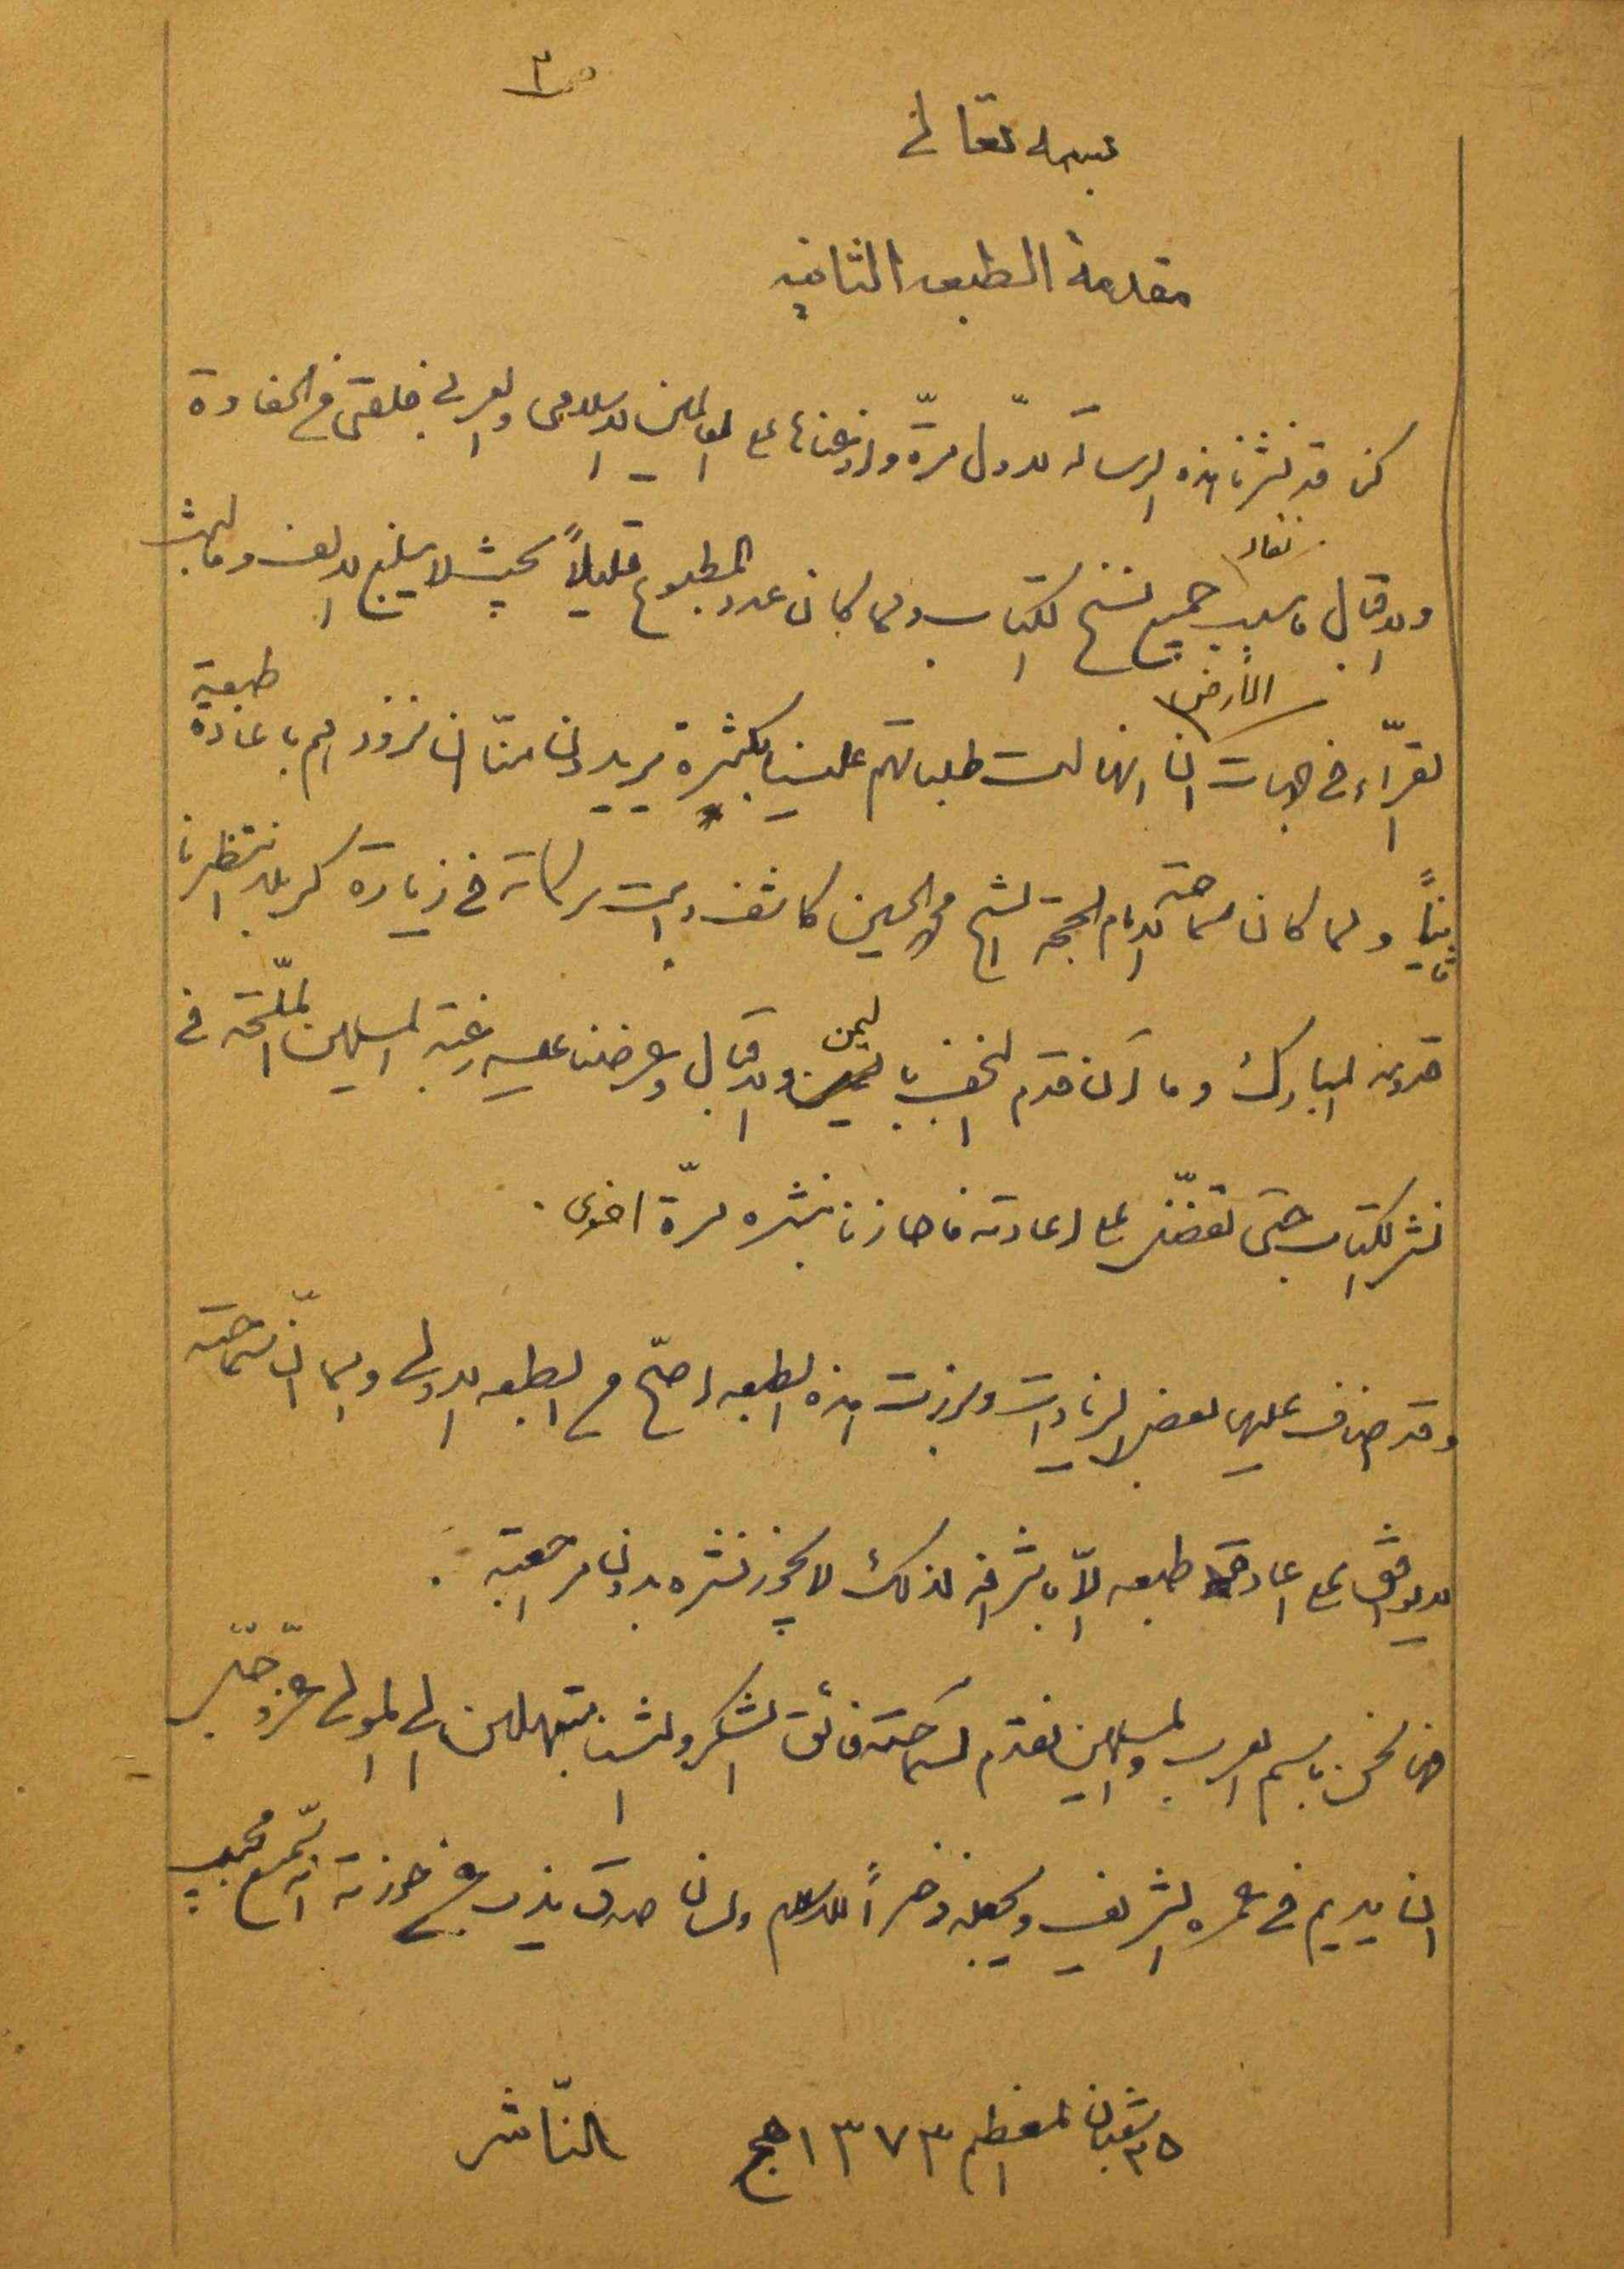 ص٣
بسمه تعالى
مقدمة الطبعه الثانيه
كنا قد نشرنا هذه الرسالة لاول مرّة واذعناها على العالمين الاسلامي والعربي فلقى من الحفاوة
نفاد
والاقبال ما سبب جميع نسخ الكتاب ولما كان عدد المطبوع قليلاً بحيث لا يبلغ الالف وما لبث
الأرض
القرّاء في جهات ان انهالت طلباتهم علينا بكثرة يريدون منّا ان نزودهم باعادة طبعه
ثانياً ولما كان سماحة الامام الحجة الشيخ محمد الحسين كاشف دامت بركاته في زيارة كربلاء انتظرنا
قدومه المبارك وما ان قدم النجف باليمن والاقبال وعرضنا عليه رغبة المسلمين الملحّة في
نشر الكتاب حتى تفضّل على اعادته فاجازنا بنشره مرّة اخرى .
وقد اضاف عليها بعض الزيادات وبرزت هذه الطبعه اصحّ من الطبعه الاولى وبما انّ سماحته
لا يوافق على اعادة طبعه الّا باشرافه لذلك لا يجوز نشره بدون مراجعته .
ها نحن باسم العرب والمسلمين نقدم لسماحته فائق الشكر والثناء مبتهلين الى المولى عزّ وجلّ
ان يديم في عمره الشريف ويجعله ذخراً للاسلام ولسان صدق يذب عن حوزته انّه سميع مجيب
٢٥ شعبان المعظم ١٣٧٣ هج النّاشر